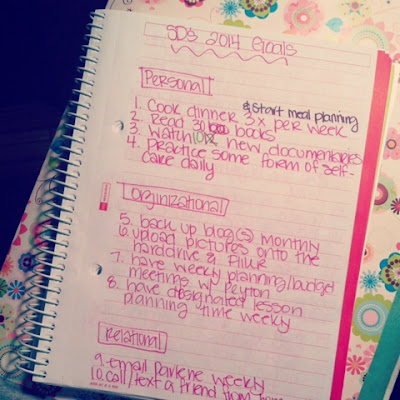 SD's 2014 Goals
Personal
& start meal planning
1. Cook dinner 3x per week
2. Read books
3. Watch new documentaries
4. Practice some form of self-
care daily
Organizational
5. back up blog(s) monthly
6. upload pictures onto the
harddrive & Flikr
7. have weekly planning/budget
meetings w/ Peyton
8. have designated lesson
planning time weekly
Relational
9. email weekly
10. call/text a friend from